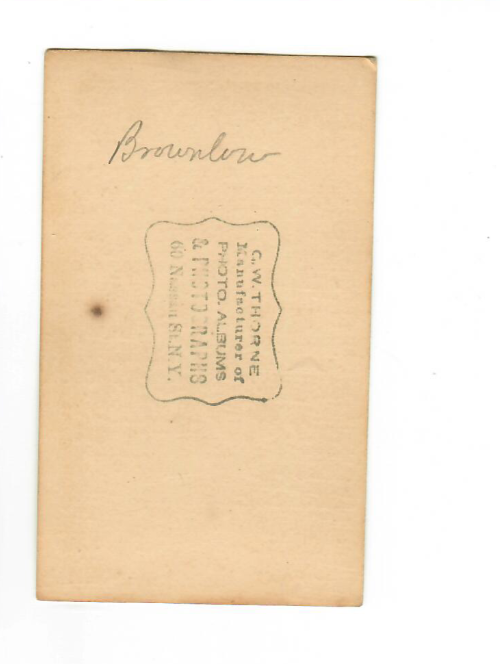 Brownlow
G. W. THORNE
Manufacturer of
PHOTO. ALBUMS
& PHOTOGRAPHS
60 Nassau St. N.Y.